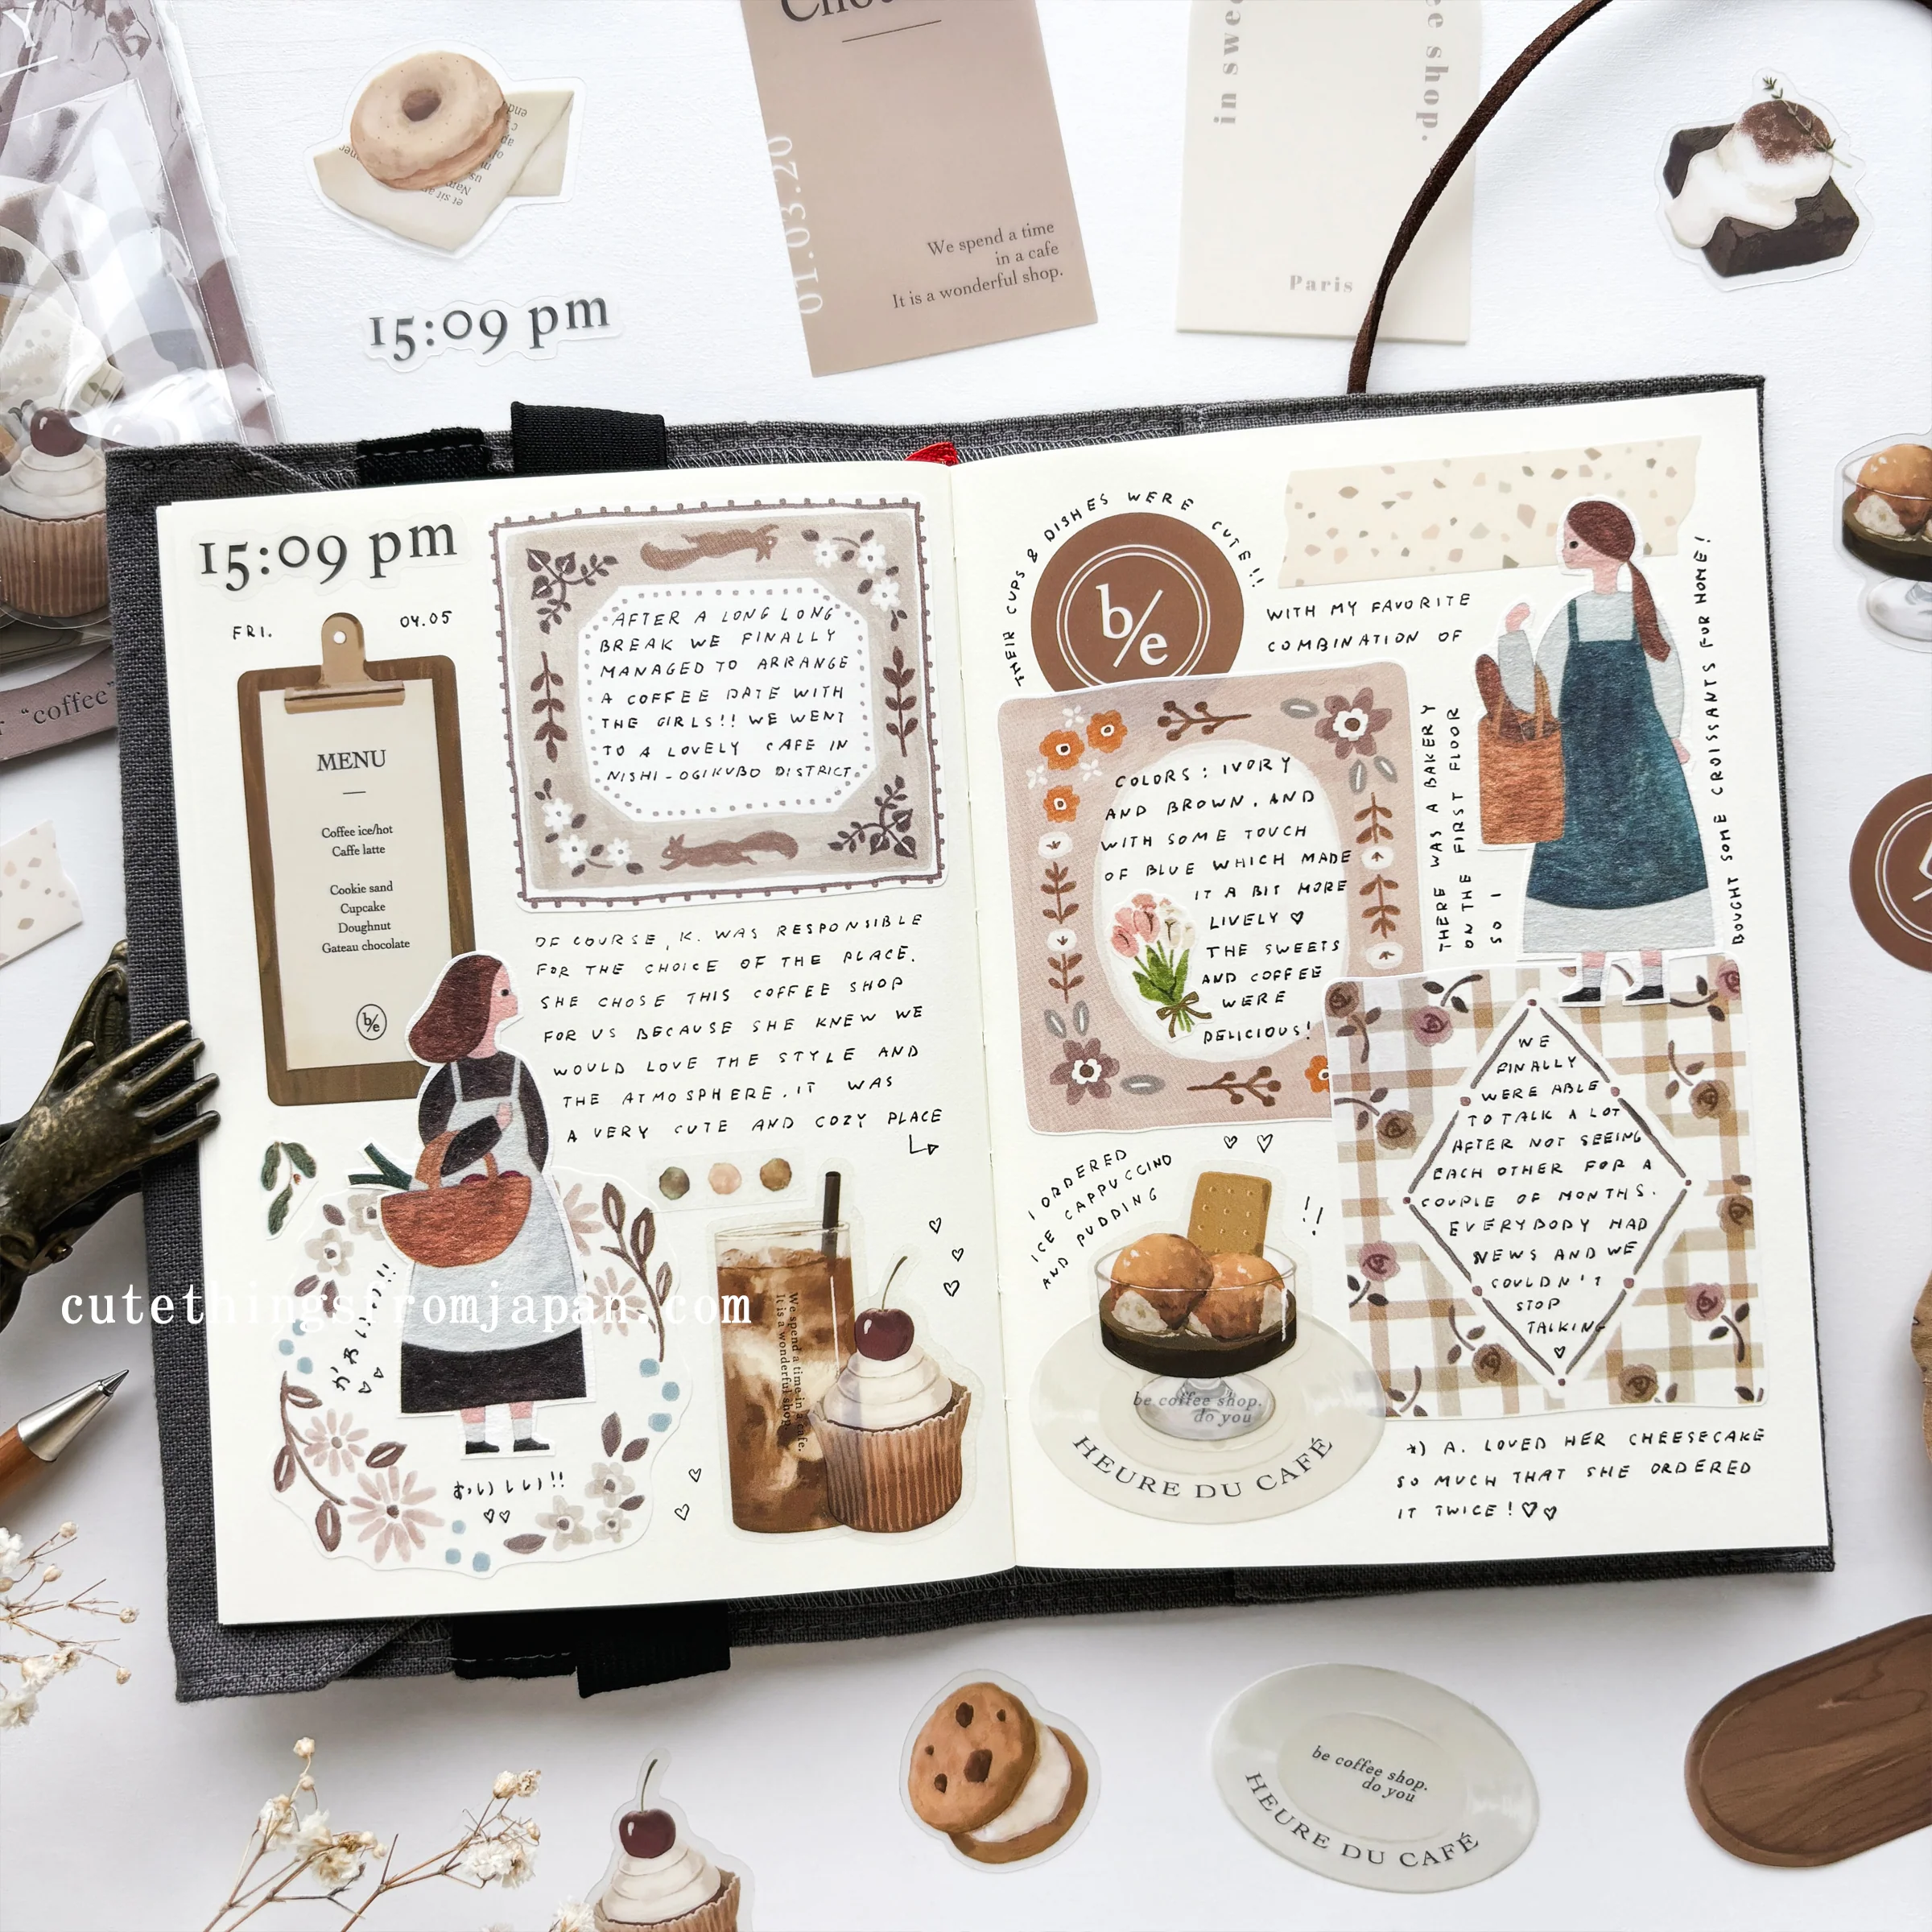 We spend a time
in a cafe
It is a wonderful shop.
01.03.20
in swee
ee shop.
Paris
15:09 pm
"coffee"
15:09 pm
FRI.
04.05
MENU
Coffee ice/hot
Caffe latte
Cookie sand
Cupcake
Doughnut
Gateau chocolate
b/e
AFTER A LONG LONG
BREAK WE FINALLY
MANAGED TO ARRANGE
A COFFEE DATE WITH
THE GIRLS!! WE WENT
TO A LOVELY CAFE IN
NISHI-OGIKUBO DISTRICT.
OF COURSE, K. WAS RESPONSIBLE
FOR THE CHOICE OF THE PLACE.
SHE CHOSE THIS COFFEE SHOP
FOR US BECAUSE SHE KNEW WE
WOULD LOVE THE STYLE AND
THE ATMOSPHERE. IT WAS
A VERY CUTE AND COZY PLACE
cutethingsfromjapan.com
かわいい!!
おいしい!!
We spend a time in a cafe.
It is a wonderful shop.
THEIR CUPS & DISHES WERE CUTE!!
b/e
WITH MY FAVORITE
COMBINATION OF
COLORS: IVORY
AND BROWN. AND
WITH SOME TOUCH
OF BLUE WHICH MADE
IT A BIT MORE
LIVELY ♡
THE SWEETS
AND COFFEE
WERE
DELICIOUS!
THERE WAS A BAKERY
ON THE FIRST FLOOR
SO I
BOUGHT SOME CROISSANTS FOR HOME!
I ORDERED
ICE CAPPUCCINO
AND PUDDING
!!
be coffee shop.
do you
HEURE DU CAFÉ
WE
FINALLY
WERE ABLE
TO TALK A LOT
AFTER NOT SEEING
EACH OTHER FOR A
COUPLE OF MONTHS.
EVERYBODY HAD
NEWS AND WE
COULDN'T
STOP
TALKING
♡
*) A. LOVED HER CHEESECAKE
SO MUCH THAT SHE ORDERED
IT TWICE! ♡♡
be coffee shop.
do you
HEURE DU CAFÉ